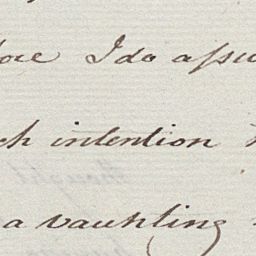 fore I do assu
ch intention
a vauhting